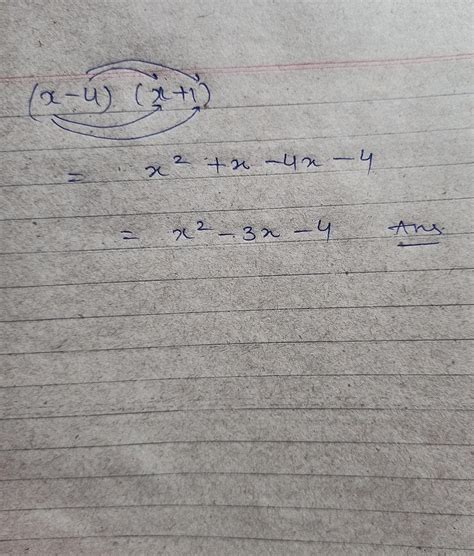 (x-4) (x+1)
= x² + x - 4x - 4
= x² - 3x - 4 Ans.